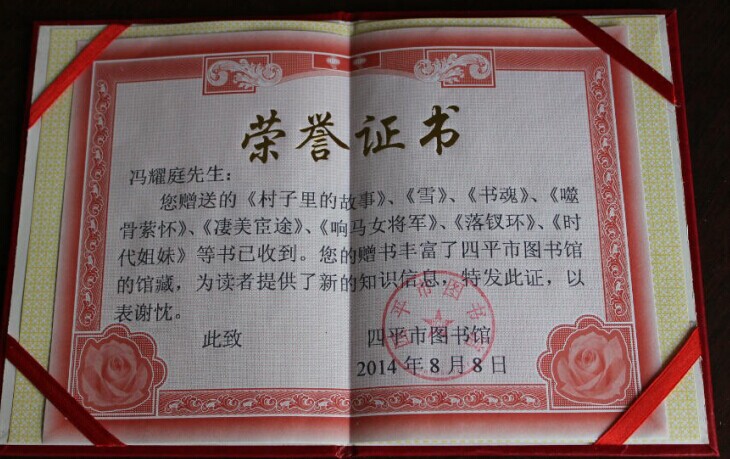 荣誉证书
冯耀庭先生：
您赠送的《村子里的故事》、《雪》、《书魂》、《噬
骨萦怀》、《凄美宦途》、《响马女将军》、《落钗环》、《时
代姐妹》等书已收到。您的赠书丰富了四平市图书馆
的馆藏，为读者提供了新的知识信息，特发此证，以
表谢忱。
此致
四平市图书馆
2014年8月8日
四平市图书馆